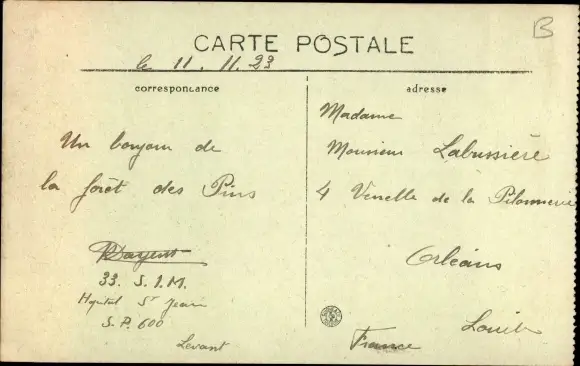 B
CARTE POSTALE
le 11.11.23
correspondance
adresse
Un bonjour de
la forêt des Pins
33. S.I.M.
Hopital St Jean
S.P. 600
Levant
Madame
Monsieur Labussière
4 Venelle de la
Orléans
Loiret
France